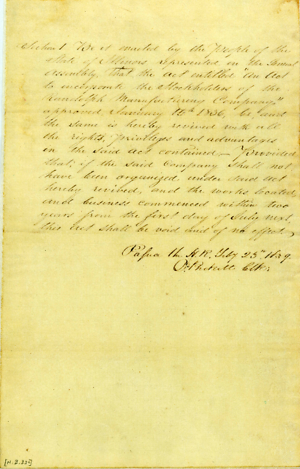 Section 1 Be it enacted by the People of the
State of Illinois represented in the General
Assembly, that the act intitled "An Act
to incorporate the Stockholders of the
Randolph Manufacturing Company"
approved January 16th 1836, be, and
the same is hereby revived with all
the rights, privileges and advantages
in the said act contained — Provided
that if the said Company shall not
have been organized under said act
hereby revived, and the works located
and business commenced within two
years from the first day of July next,
this act shall be void and of no effect.
Passed the H.R. Feby 25th 1839.
Prickett Clk.